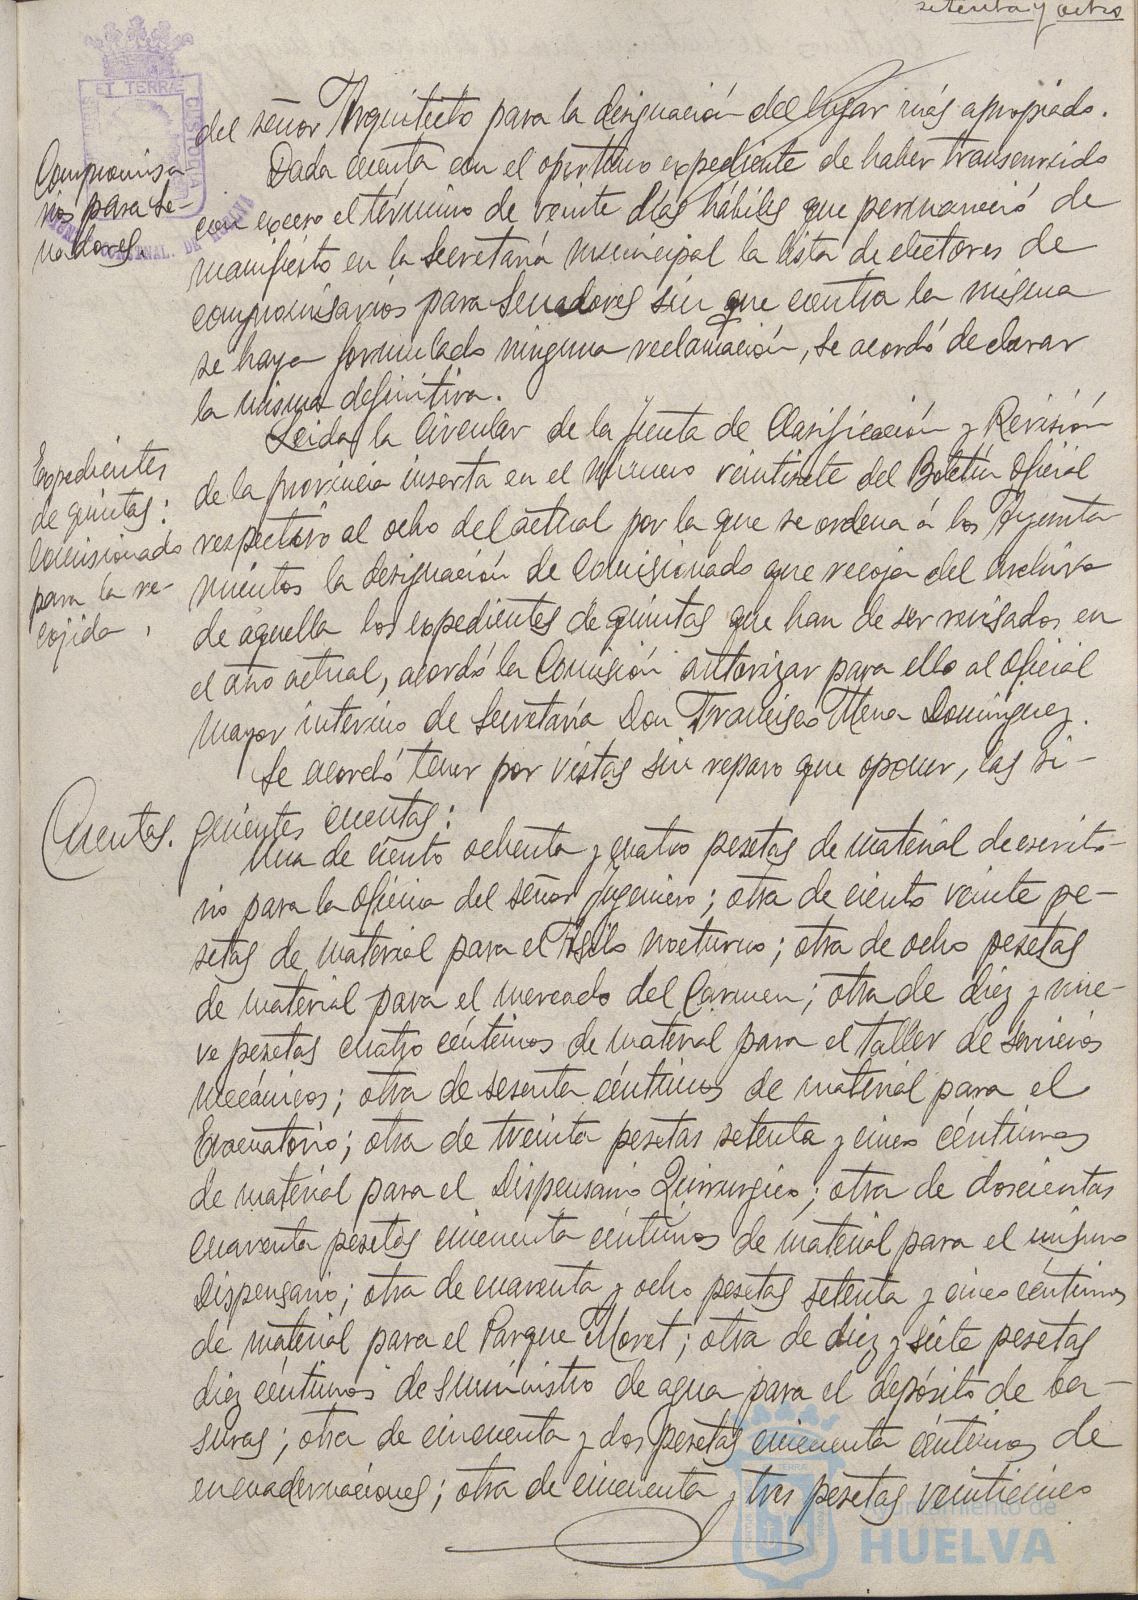 setenta y ocho
del señor Arquitecto para la designación del lugar más apropiado.
Compromisa-
rios para Se-
nadores.
Dada cuenta con el oportuno expediente de haber transcurrido
con exceso el término de veinte días hábiles que permaneció de
manifiesto en la Secretaría municipal la lista de electores de
compromisarios para Senadores sin que contra la misma
se haya formulado ninguna reclamación, se acordó declarar
la misma definitiva.
Expedientes
de quintas:
Comisionado
para la re-
cojida.
Leida la Circular de la Junta de Clasificación y Revisión
de la provincia inserta en el número veintisiete del Boletín Oficial
respectivo al ocho del actual por la que se ordena á los Ayunta-
mientos la designación de Comisionado que recoja del archivo
de aquella los expedientes de quintas que han de ser revisados en
el año actual, acordó la Comisión autorizar para ello al Oficial
mayor interino de Secretaría Don Francisco Mena Domínguez.
Se acordó tener por vistas sin reparo que oponer, las si-
Cuentas. guientes cuentas:
Una de ciento ochenta y cuatro pesetas de material de escrito-
rio para la oficina del señor Ingeniero; otra de ciento veinte pe-
setas de material para el Asilo nocturno; otra de ocho pesetas
de material para el mercado del Carmen; otra de diez y nue-
ve pesetas cuatro céntimos de material para el taller de servicios
mecánicos; otra de sesenta céntimos de material para el
Evacuatorio; otra de treinta pesetas setenta y cinco céntimos
de material para el Dispensario Quirurgico; otra de doscientas
cuarenta pesetas cincuenta céntimos de material para el mismo
Dispensario; otra de cuarenta y ocho pesetas setenta y cinco céntimos
de material para el Parque Moret; otra de diez y siete pesetas
diez céntimos de suministro de agua para el depósito de ba-
suras; otra de cincuenta y dos pesetas cincuenta céntimos de
encuadernaciones; otra de cincuenta y tres pesetas veinticinco
Ayuntamiento de
HUELVA